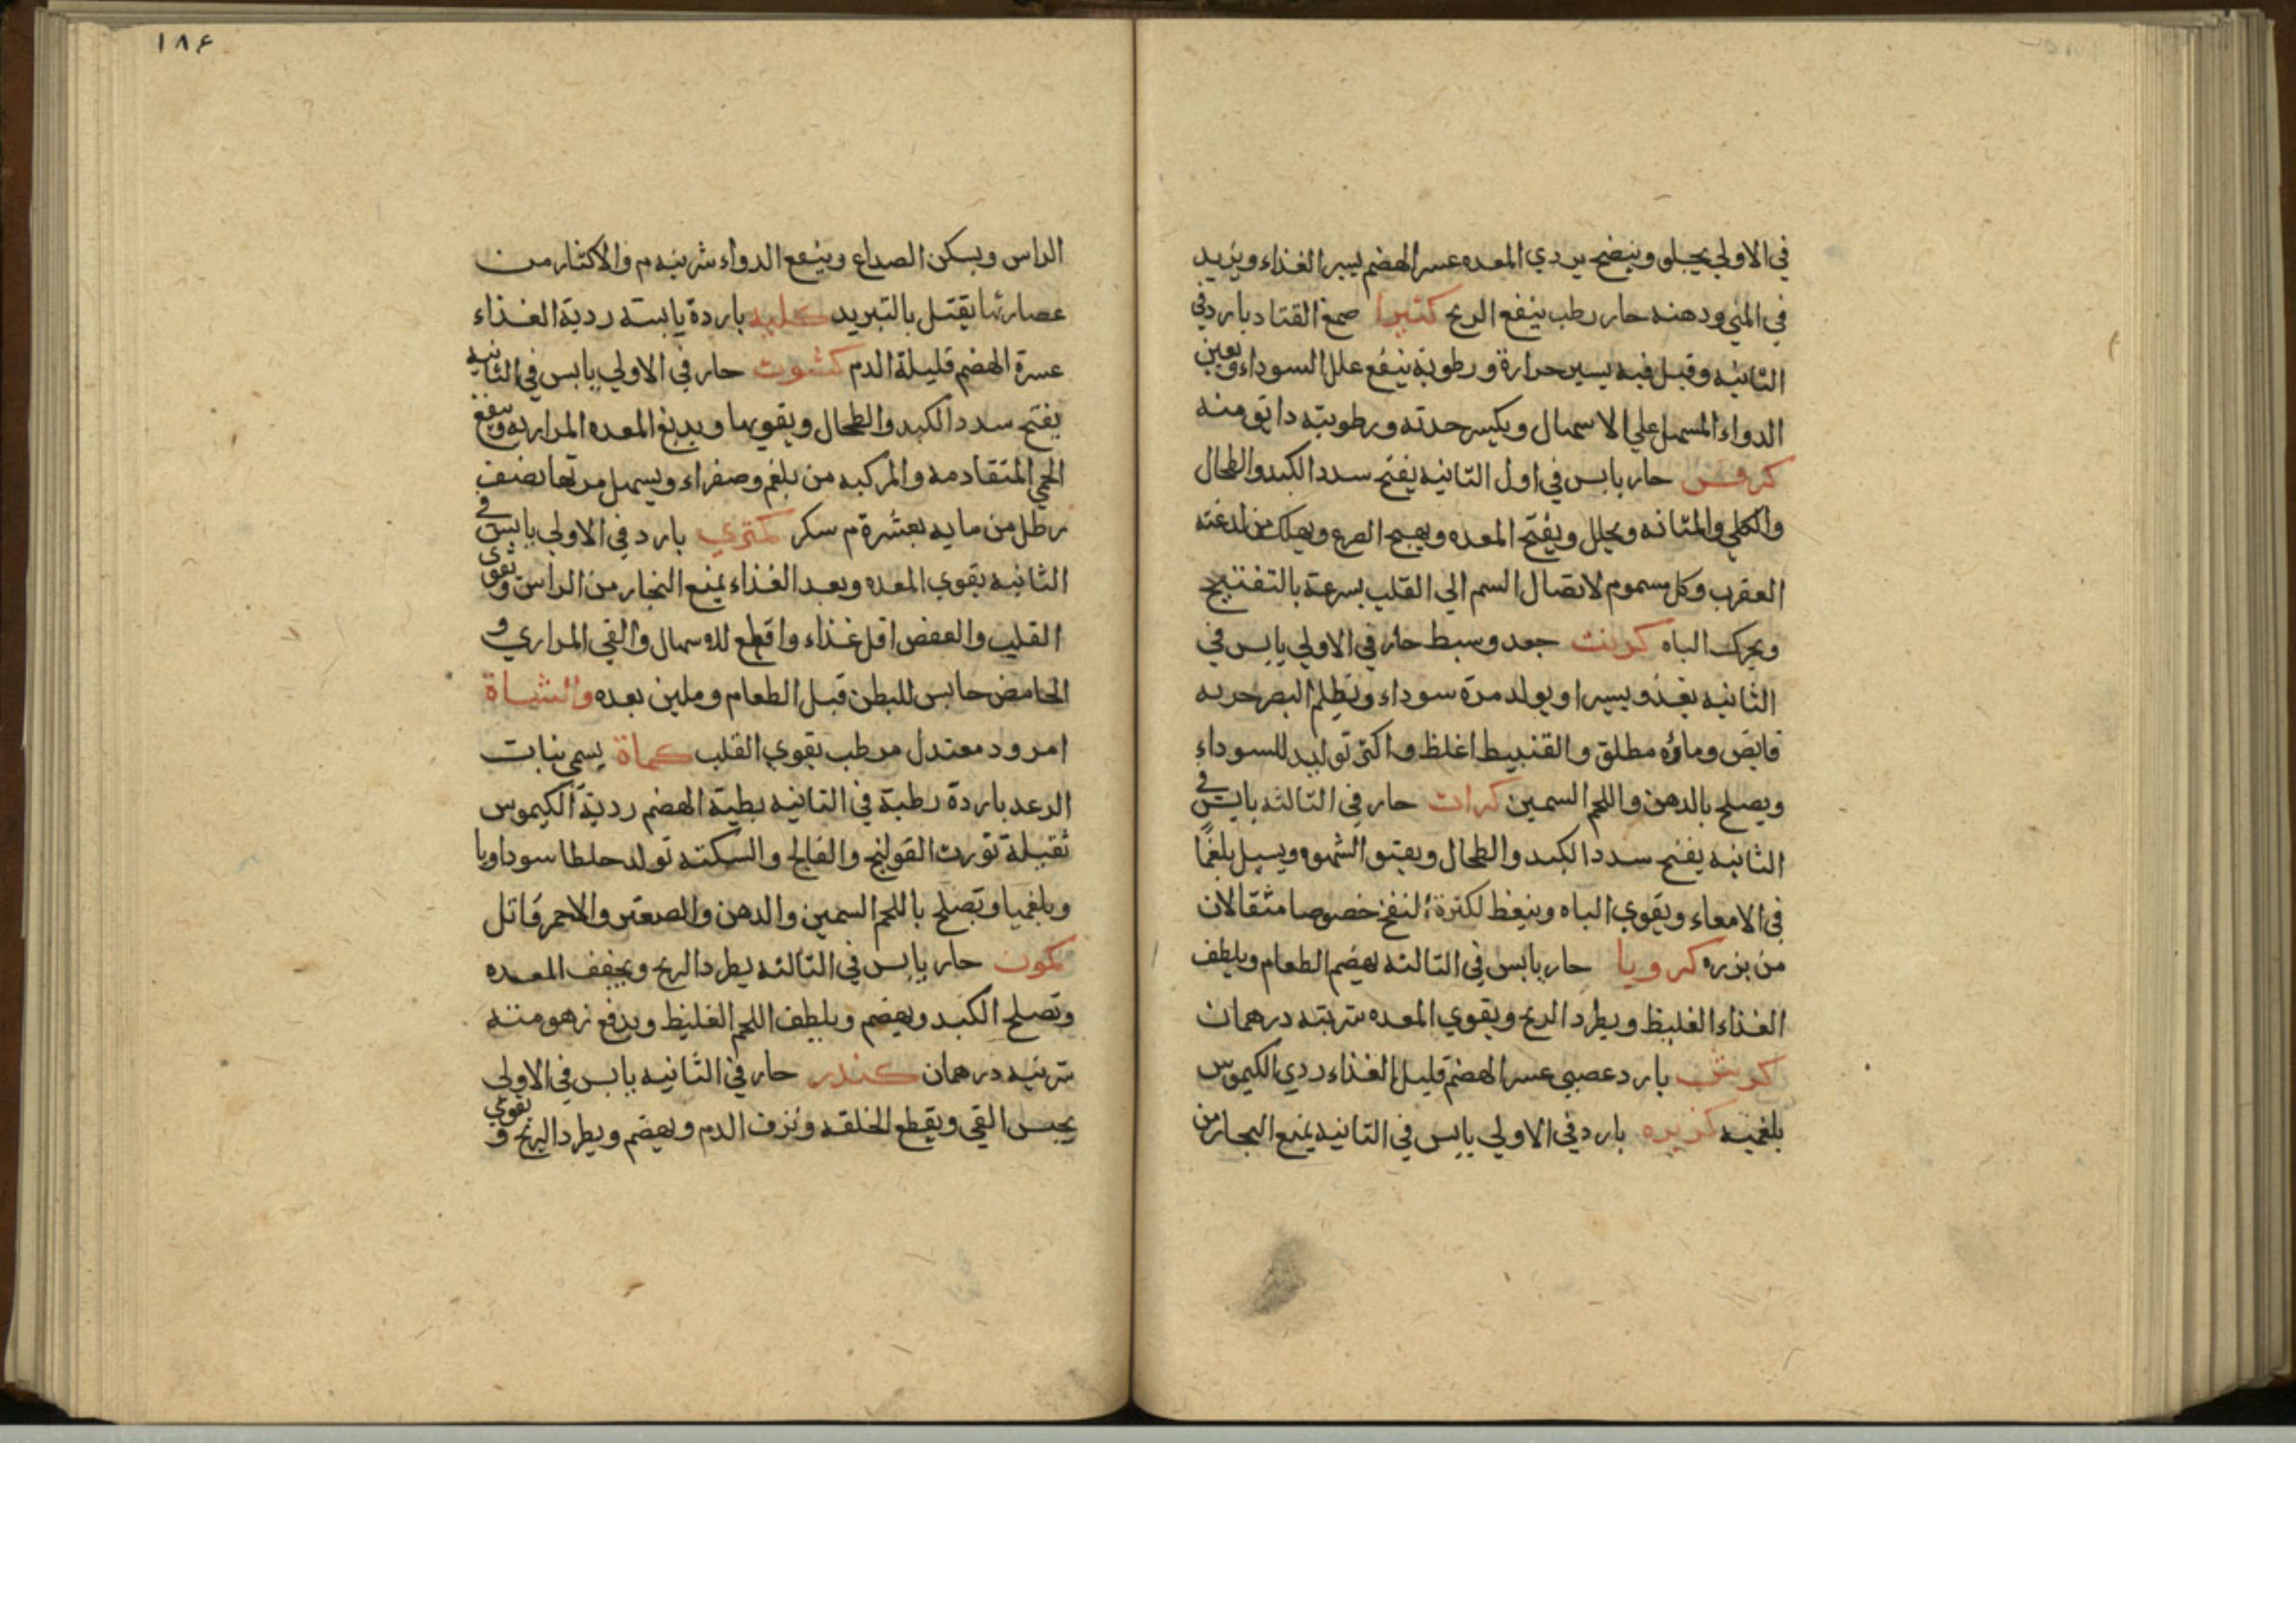 في الاولي يجلو وينضج يردي المعده عسر الهضم يسير الغذاء ويزيد
في المني ودهنه حار رطب ينفع الريح كثيرا صمغ القتاد بارد في
الثانيه وقيل فيه يسير حرارة ورطوبة ينفع علل السوداء ويعين
الدواء المسهل علي الاسهال ويكسر حدته ورطوبته دانق منه
كرفس حار يابس في اول الثانيه يفتح سدد الكبد والطحال
والكلي والمثانه ويحلل ويفتح المعده ويهيج الصرع ويهلك من لدغته
العقرب وكل مسموم لاتصال السم الي القلب بسرعة بالتفتيح
ويحرك الباه كرنب جعد وسبط حار في الاولي يابس في
الثانيه يغذو يسيرا ويولد مرة سوداء ويظلم البصر جرمه
قابض وماؤه مطلق والقنبيط اغلظ واكثر توليد للسوداء
ويصلح بالدهن واللحم السمين كراث حار في الثالثه يابس في
الثانيه يفتح سدد الكبد والطحال ويفتق الشهوه ويسيل بلغمًا
في الامعاء ويقوي الباه وينعظ لكثرة النفخ خصوصا مثقالان
من بزره كرويا حار يابس في الثالثه يهضم الطعام ويلطف
الغذاء الغليظ ويطرد الريح ويقوي المعده شربته درهمان
كرش بارد عصبي عسر الهضم قليل الغذاء ردي الكيموس
بلغميه كزبره بارد في الاولي يابس في الثانيه يمنع البخار من
١٨۶
الراس ويسكن الصداع وينفع الدواء شربته م والاكثار من
عصارتها يقتل بالتبريد كليه باردة يابسته ردية الغذاء
عسرة الهضم قليلة الدم كشوث حار في الاولي يابس في الثانيه
يفتح سدد الكبد والطحال ويقويها ويدبغ المعده المراريه وينفع
الحمي المتقادمه والمركبه من بلغم وصفراء ويسهل مرتها نصف
رطل من مايه بعشرة م سكر كمثري بارد في الاولي يابس في
الثانيه يقوي المعده وبعد الغذاء يمنع البخار من الراس ويقوي
القلب والعفص اقل غذاء واقطع للاسهال والقي المراري و
الحامض حابس للبطن قبل الطعام وملين بعده والشياة
امرود معتدل مرطب يقوي القلب كماة يسمي نبات
الرعد باردة رطبة في الثانيه بطية الهضم ردية الكيموس
ثقيلة تورث القولنج والفالج والسكته تولد خلطا سوداويا
وبلغميا وتصلح باللحم السمين والدهن والصعتر والاحمر قاتل
كمون حار يابس في الثالثه يطرد الريح ويجفف المعده
وتصلح الكبد ويهضم ويلطف اللحم الغليظ ويدفع زهومته
شربته درهمان كندر حار في الثانيه يابس في الاولي
يحبس القي ويقطع الخلفه ونزف الدم ويهضم ويطرد الريح ويقوي